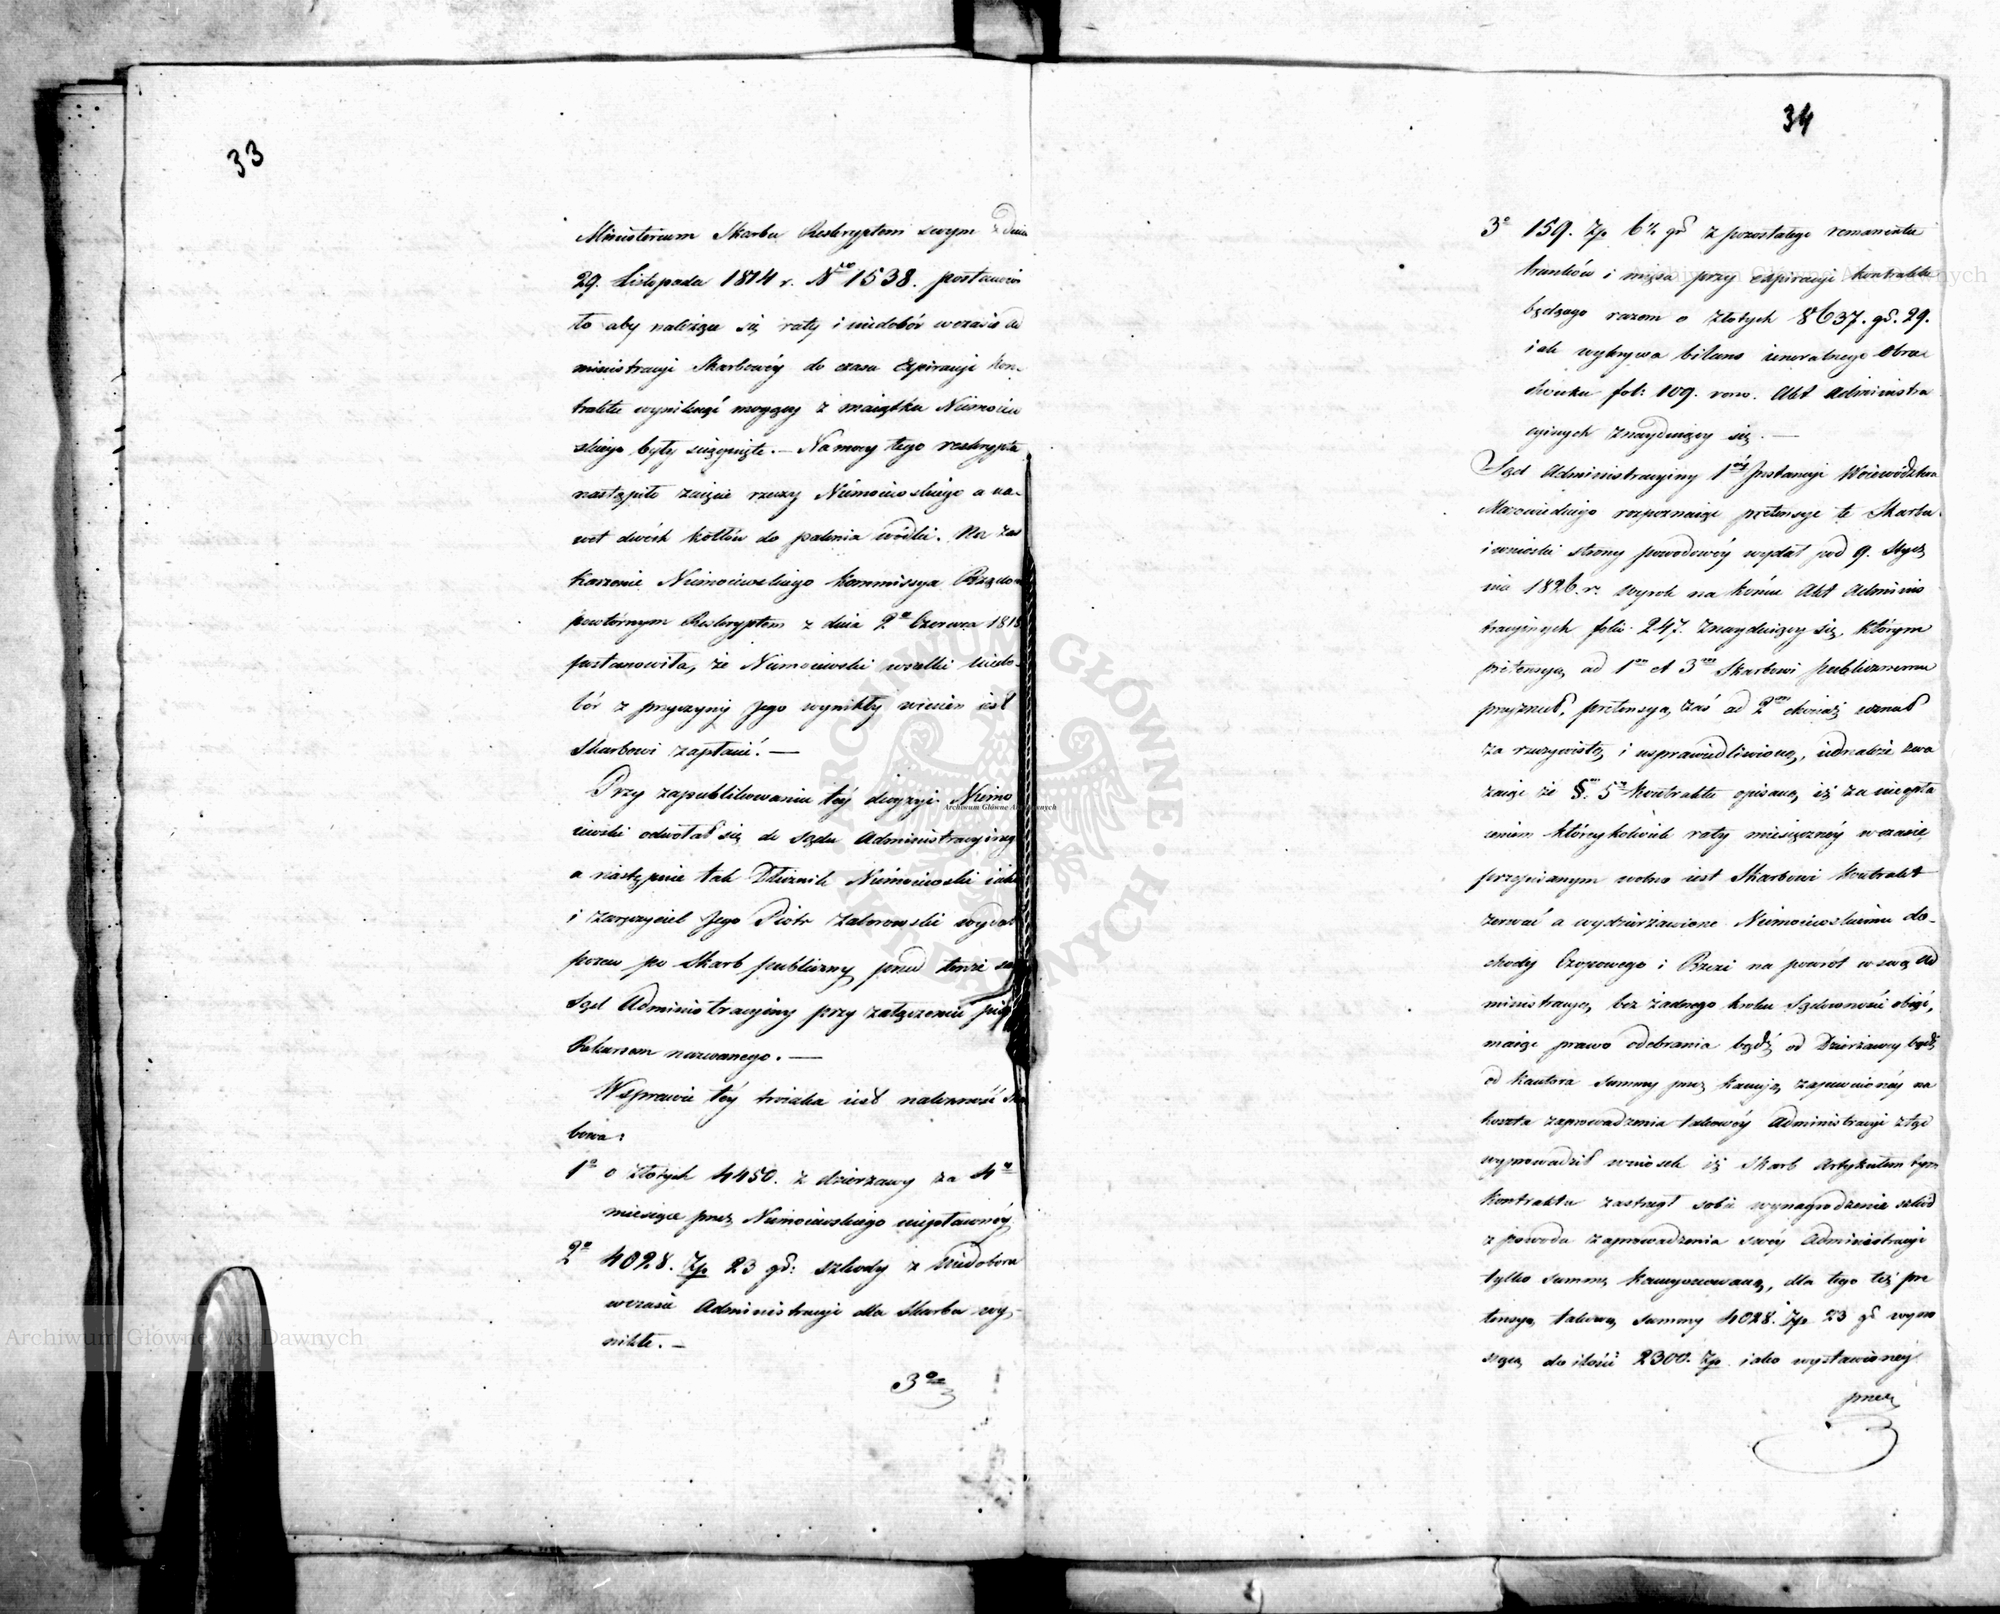 33
Ministerium Skarbu Reskryptem swym z dnia
29. Listopada 1814 r. Nro 1538. postanowi
to aby należące się raty i niedobór w czasie ad
ministracyi Skarbowey do czasu Expiracyi Kon-
traktu wyniknąć mogący z maiątku Niemoiew
skiego były ściągnięte. — Na mocy tego reskryptu
nastąpiło zaięcie rzeczy Niemoiewskiego a na-
wet dwóch kotłów do palenia wódki. Na zas
karżenie Niemoiewskiego Kommissya Rządowa
powtórnym Reskryptem z dnia 2go Czerwca 1818
postanowiła, że Niemoiewski wszelki niedo-
bór z przyczyny Jego wynikły winien iest
Skarbowi zapłacić. —
Przy zapublikowaniu tey decyzyi Niemo
iewski odwołał się do Sądu Administracyineg
a następnie tak Dłużnik Niemoiewski iako
i zaręczyciel Jego Piotr Zaborowski wydał
pozew po Skarb publiczny przed tenże sam
Sąd Administracyiny przy załączeniu pis
Rekursem nazwanego. —
W sprawie tey troiaka iest należność Ska
bowa:
1o o złotych 4450. z dzierzawy za 4o
miesiące przez Niemoiewskiego nieopłaconey
2o 4028. Zp 23 gr: szkody z niedoboru
w czasie Administracyi dla Skarbu wy-
nikłe. —
3o
34
3o 159. Zp 6½ gr z pozostałego remanentu
trunków i mięsa przy expiracyi kontraktu
będącego razem o złotych 8637. gr. 29.
iak wykrywa bilans ieneralnego Obra
chunku fol: 109. Akt Administra
cyinych znayduiący się. —
Sąd Administracyiny 1ey Instancyi Woiewództwa
Mazowieckiego rozpoznaiąc pretensye te Skarbu
i wnioski strony powodowey wydał pod 9. Stycz
nia 1826. r. wyrok na końcu Akt Adminis
tracyinych folio 247. znayduiący się, którym
pretensyą ad 1m et 3m Skarbowi publicznemu
przyznał, pretensyą zaś ad 2m chociaż uznał
za rzeczywistą i usprawiedliwioną, iednakże zwa
zaiąc że §. 5m kontraktu opisano, iż za nieopła
ceniem którcykolwiek raty miesięczney w czasie
przepisanym wolno iest Skarbowi Kontrakt
zerwać a wydzierżawione Niemoiewskiemu do-
chody Czopowego i Rzezi na powrót w swą Ad
ministracyą, bez żadnego kroku Sądowności obiąć,
maiąc prawo odebrania bądź od Dzierżawcy bądź
od Kautora summy przez kaucyą zapewnioney na
koszta zaprowadzenia takowey Administracyi ztąd
wyprowadził wniosek iż Skarb Artykułem tym
Kontraktu zastrzegł sobie wynagrodzenie szkód
z powodu zaprowadzenia swey Administracyi
tylko summę kaucyonowaną, dla tego też pre
tensyą takową summy 4028. Zp 23 gr wyno
szącą do ilości 2300. Zp. iako wystawioney
przez
ARCHIWUM GŁÓWNE AKT DAWNYCH
Archiwum Główne Akt Dawnych
Archiwum Główne Akt Dawnych
Archiwum Główne Akt Dawnych